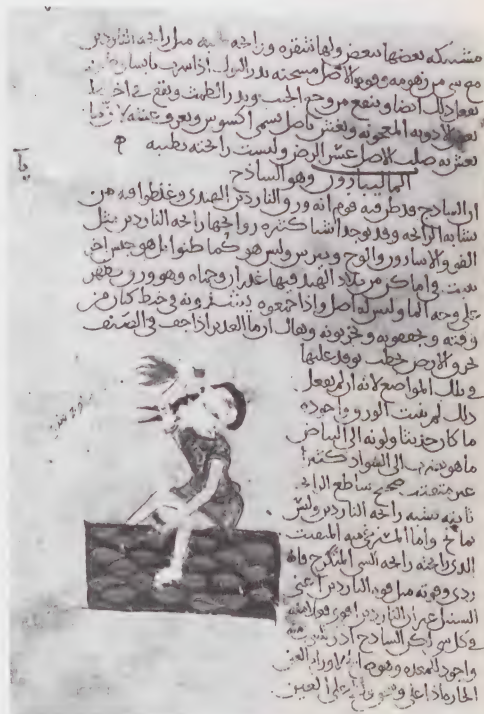 مشتبكه بعضها ببعض ولها شقره ورائحه طيبه مثل رائحه الناردين
مع شي من زهومه وقوه الاصل مسخنه يدر البول اذا شرب
يفعل ذلك ايضا وينفع من وجع الجنب ويدر الطمث ويقع في اخلاط
بعض الادويه المعجونه ويغش باصل يسمى اكسوس
يغش به صلب الاصل عسر الرض وليست رائحته بطيبه
الماليبثرون وهو الساذج
ان الساذج قد ظن فيه قوم انه ورق الناردين الهندي وغلطوا فيه من
تشابه الرائحه وقد يوجد اشيا كثيره روائحها رائحه الناردين مثل
الفو والاسارون والوج وليس هو كما ظنوا بل هو جنس اخر
ينبت في اماكن من بلاد الهند فيها غدران وحماه وهو ورق يظهر
على وجه الما وليس له اصل واذا جمعوه يشكونه في خيط كتان من
وقته ويجففونه ويخزنونه ويقال ان ما الغدير اذا جف في الصيف
تحرق الارض بحطب يوقد عليها
في تلك المواضع لانه ان لم يفعل
ذلك لم ينبت الورق واجوده
ما كان حديثا ولونه الى البياض
ما هو الى السواد كثيرا
غير متفتت صحيح ساطع الرائحه
ثابته يشبه رائحه الناردين وليس
بمالح واما المسترخي منه المتفتت
الذي رائحته رائحه الشي المتكرج فانه
ردي وقوته مثل قوه الناردين اعني
السنبل غير ان الناردين اقوى فعلا منه
في كل شي لكن الساذج ادر للبول منه
واجود للمعده وهو صالح لاورام العين
الحاره اذا غلي على العين